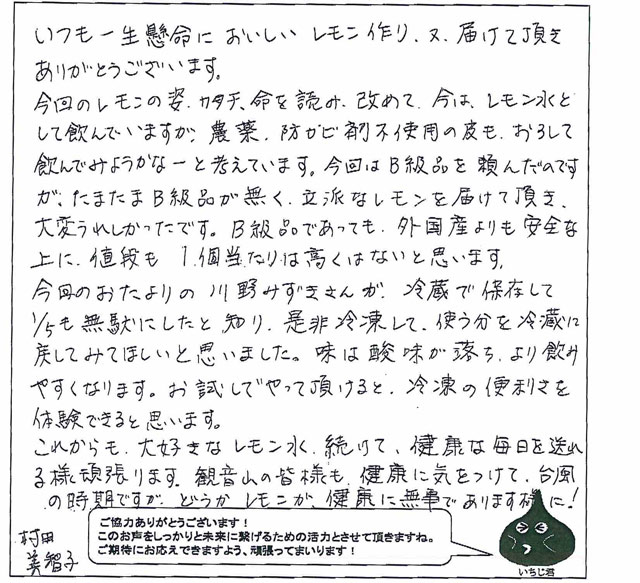 いつも一生懸命においしいレモン作り、又、届けて頂き
ありがとうございます。
今回のレモンの姿、カタチ、命を読み、改めて、今は、レモン水と
して飲んでいますが、農薬、防カビ剤不使用の皮も、おろして
飲んでみようかなーと考えています。今回はB級品を頼んだのです
が、たまたまB級品が無く、立派なレモンを届けて頂き、
大変うれしかったです。B級品であっても、外国産よりも安全な
上に、値段も1個当たりは高くはないと思います。
今回のおたよりの川野みずきさんが、冷蔵で保存して
1/5も無駄にしたと知り、是非冷凍して、使う分を冷蔵に
戻してみてほしいと思いました。味は酸味が落ち、より飲み
やすくなります。お試しでやって頂けると、冷凍の便利さを
体験できると思います。
これからも、大好きなレモン水、続けて、健康な毎日を送れ
る様頑張ります。観音山の皆様も、健康に気をつけて、台風
の時期ですが、どうかレモンが、健康に無事であります様に!
村田
美智子
ご協力ありがとうございます!
このお声をしっかりと未来に繋げるための活力とさせて頂きますね。
ご期待にお応えできますよう、頑張ってまいります!
いちじ君